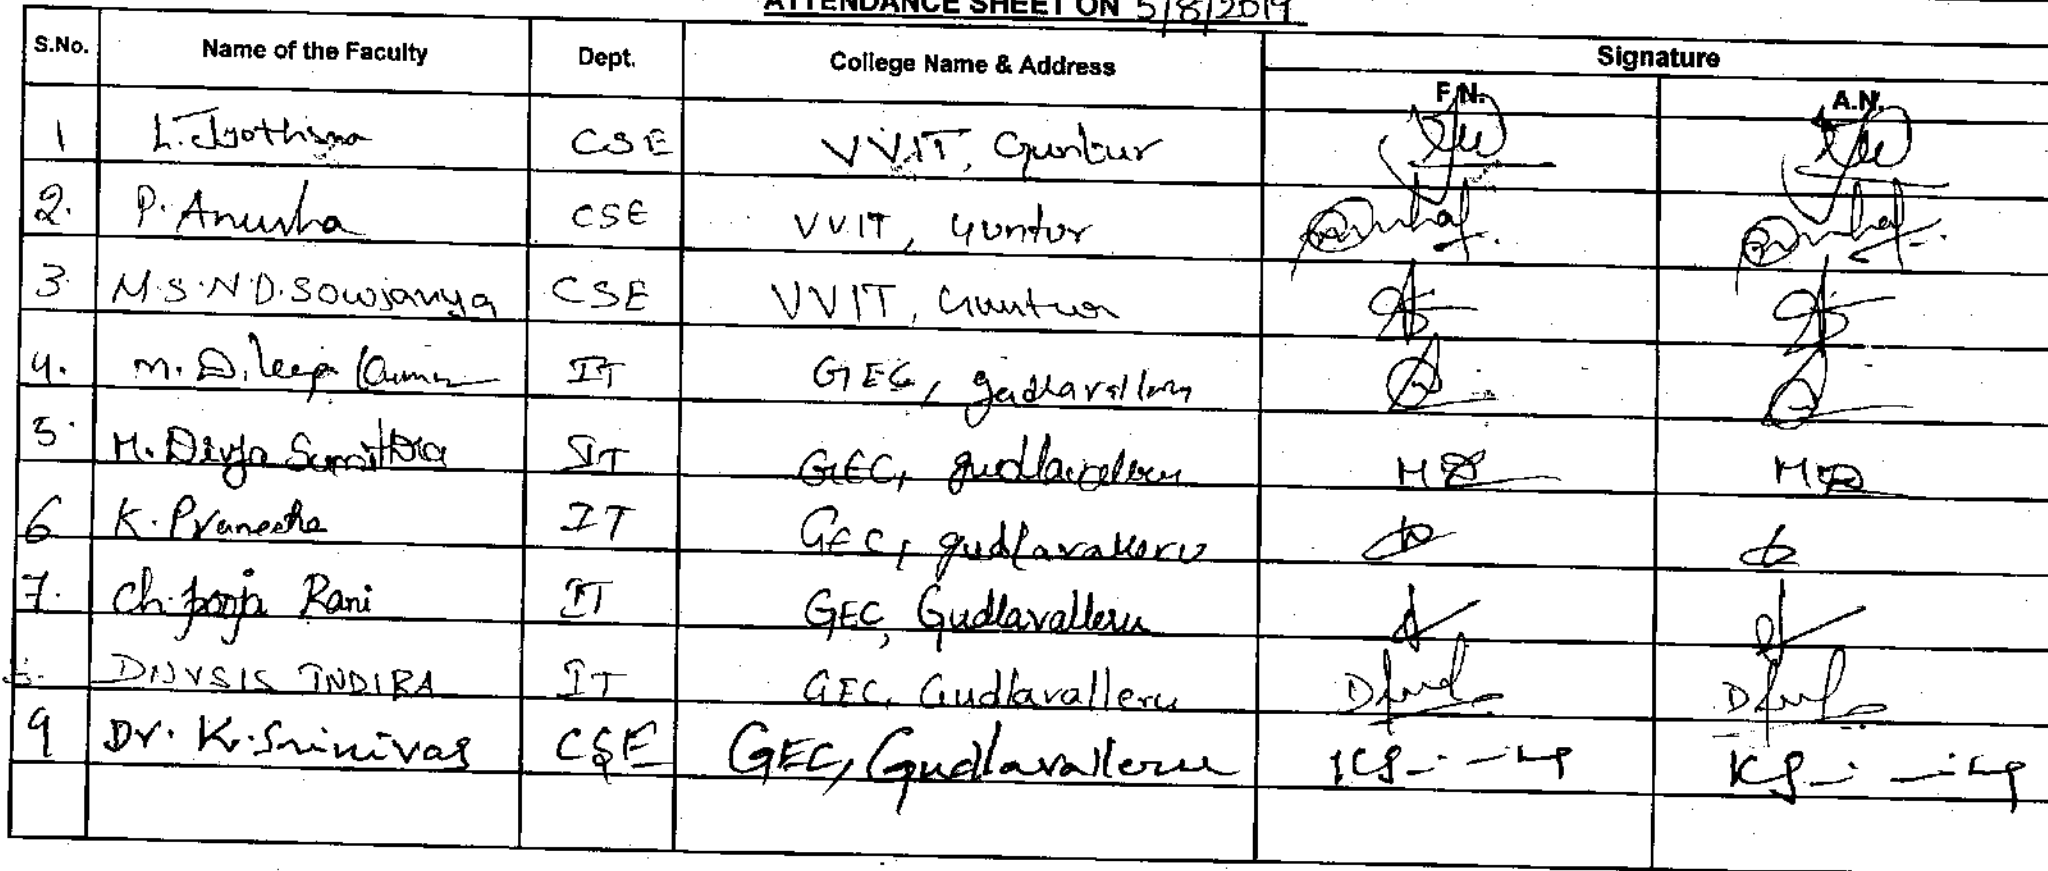 ATTENDANCE SHEET ON 5/8/2019
S.No. Name of the Faculty Dept. College Name & Address Signature
F.N. A.N.
1 L. Jyothisna CSE VVIT, Guntur
2. P. Anusha CSE VVIT, Guntur
3. M.S.N.D. Sowjanya CSE VVIT, Guntur
4. M. Dileep Kumar IT GEC, gudlavalleru
5. M. Divya Sumithra IT GEC, gudlavalleru
6 K. IT GEC, gudlavalleru
7. Ch. pooja Rani IT GEC, Gudlavalleru
INDIRA IT GEC, Gudlavalleru
9 Dr. K. Srinivas CSE GEC, Gudlavalleru